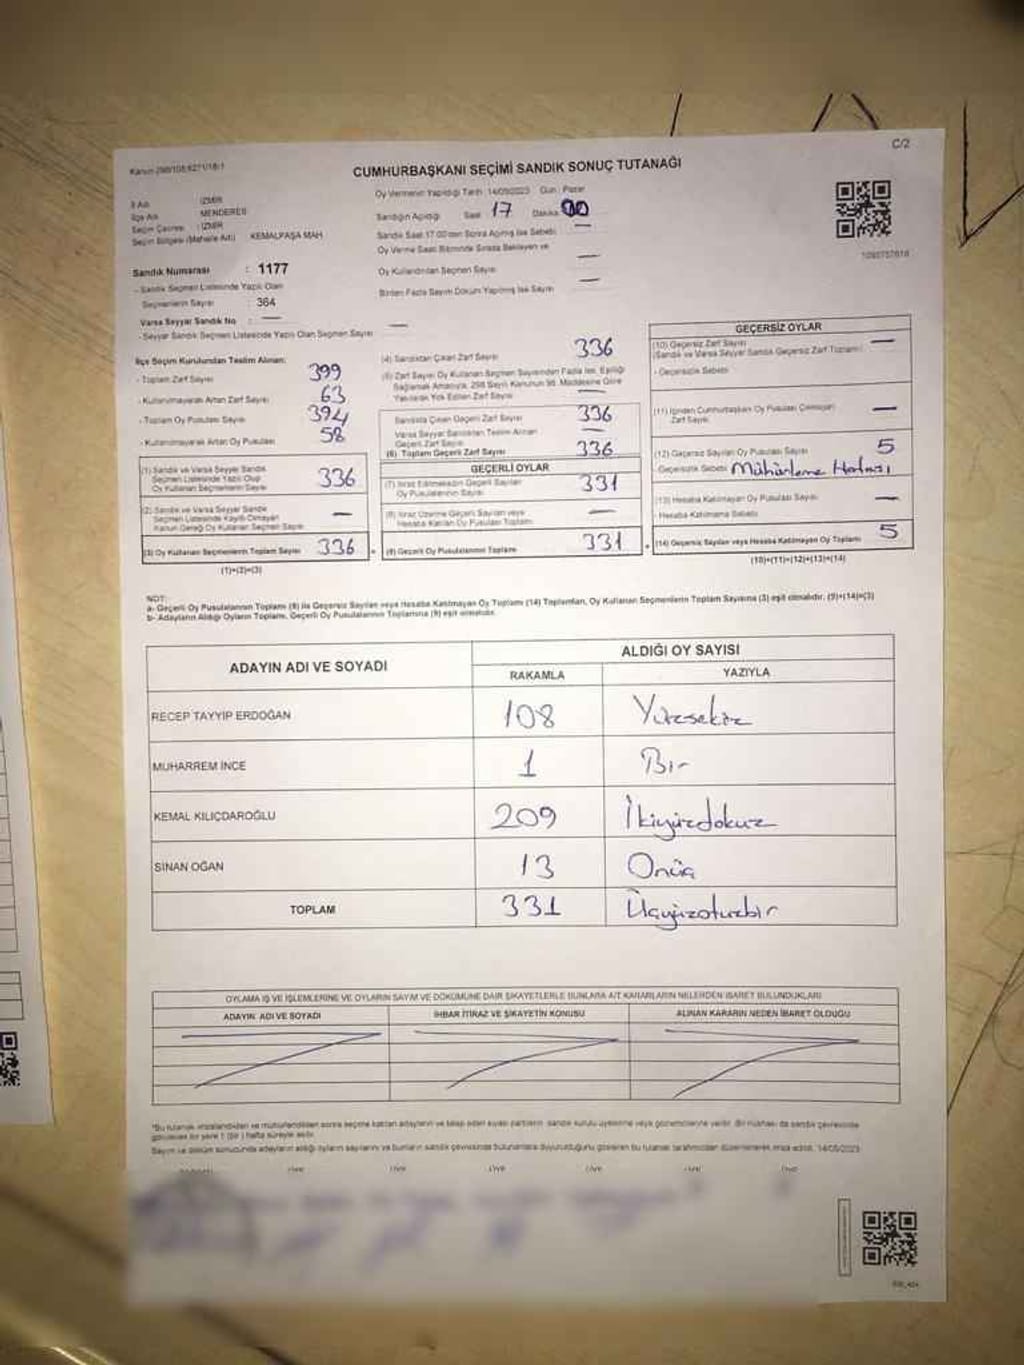 C/2
Kanun 298/105,6271/18-1
CUMHURBAŞKANI SEÇİMİ SANDIK SONUÇ TUTANAĞI
İl Adı : İZMİR
İlçe Adı : MENDERES
Seçim Çevresi : İZMİR
Seçim Bölgesi (Mahalle Adı) KEMALPAŞA MAH
Oy Vermenin Yapıldığı Tarih 14/05/2023 Gün : Pazar
Sandığın Açıldığı Saat 17 Dakika 00
Sandık Saat 17.00'den Sonra Açılmış İse Sebebi —
Oy Verme Saati Bitiminde Sırada Bekleyen ve
Oy Kullandırılan Seçmen Sayısı —
Birden Fazla Sayım Döküm Yapılmış İse Sayısı —
Sandık Numarası : 1177
- Sandık Seçmen Listesinde Yazılı Olan
Seçmenlerin Sayısı : 364
Varsa Seyyar Sandık No : —
- Seyyar Sandık Seçmen Listesinde Yazılı Olan Seçmen Sayısı —
İlçe Seçim Kurulundan Teslim Alınan:
- Toplam Zarf Sayısı 399
- Kullanılmayarak Artan Zarf Sayısı 63
- Toplam Oy Pusulası Sayısı 394
- Kullanılmayarak Artan Oy Pusulası 58
(1) Sandık ve Varsa Seyyar Sandık
Seçmen Listesinde Yazılı Olup
Oy Kullanan Seçmenlerin Sayısı 336
(2) Sandık ve Varsa Seyyar Sandık
Seçmen Listesinde Kayıtlı Olmayan
Kanun Gereği Oy Kullanan Seçmen Sayısı —
(3) Oy Kullanan Seçmenlerin Toplam Sayısı 336
(1)+(2)=(3)
(4) Sandıktan Çıkan Zarf Sayısı 336
(5) Zarf Sayısı Oy Kullanan Seçmen Sayısından Fazla İse, Eşitliği
Sağlamak Amacıyla, 298 Sayılı Kanunun 98. Maddesine Göre
Yakılarak Yok Edilen Zarf Sayısı —
Sandıkta Çıkan Geçerli Zarf Sayısı 336
Varsa Seyyar Sandıktan Teslim Alınan
Geçerli Zarf Sayısı —
(6) Toplam Geçerli Zarf Sayısı 336
GEÇERLİ OYLAR
(7) İtiraz Edilmeksizin Geçerli Sayılan
Oy Pusulalarının Sayısı 331
(8) İtiraz Üzerine Geçerli Sayılan veya
Hesaba Katılan Oy Pusulası Toplamı —
(9) Geçerli Oy Pusulalarının Toplamı 331
GEÇERSİZ OYLAR
(10) Geçersiz Zarf Sayısı —
(Sandık ve Varsa Seyyar Sandık Geçersiz Zarf Toplamı)
- Geçersizlik Sebebi
(11) İçinden Cumhurbaşkanı Oy Pusulası Çıkmayan
Zarf Sayısı —
(12) Geçersiz Sayılan Oy Pusulası Sayısı 5
- Geçersizlik Sebebi Mühürleme Hatası
(13) Hesaba Katılmayan Oy Pusulası Sayısı —
- Hesaba Katılmama Sebebi
(14) Geçersiz Sayılan veya Hesaba Katılmayan Oy Toplamı 5
(10)+(11)+(12)+(13)=(14)
NOT:
a- Geçerli Oy Pusulalarının Toplamı (9) ile Geçersiz Sayılan veya Hesaba Katılmayan Oy Toplamı (14) Toplamları, Oy Kullanan Seçmenlerin Toplam Sayısına (3) eşit olmalıdır. (9)+(14)=(3)
b- Adayların Aldığı Oyların Toplamı, Geçerli Oy Pusulalarının Toplamına (9) eşit olmalıdır.
ADAYIN ADI VE SOYADI
ALDIĞI OY SAYISI
RAKAMLA YAZIYLA
RECEP TAYYİP ERDOĞAN 108 Yüzsekiz
MUHARREM İNCE 1 Bir
KEMAL KILIÇDAROĞLU 209 İkiyüzdokuz
SİNAN OĞAN 13 Onüç
TOPLAM 331 Üçyüzotuzbir
OYLAMA İŞ VE İŞLEMLERİNE VE OYLARIN SAYIM VE DÖKÜMÜNE DAİR ŞİKAYETLERLE BUNLARA AİT KARARLARIN NELERDEN İBARET BULUNDUKLARI
ADAYIN ADI VE SOYADI
İHBAR İTİRAZ VE ŞİKAYETİN KONUSU
ALINAN KARARIN NEDEN İBARET OLDUĞU